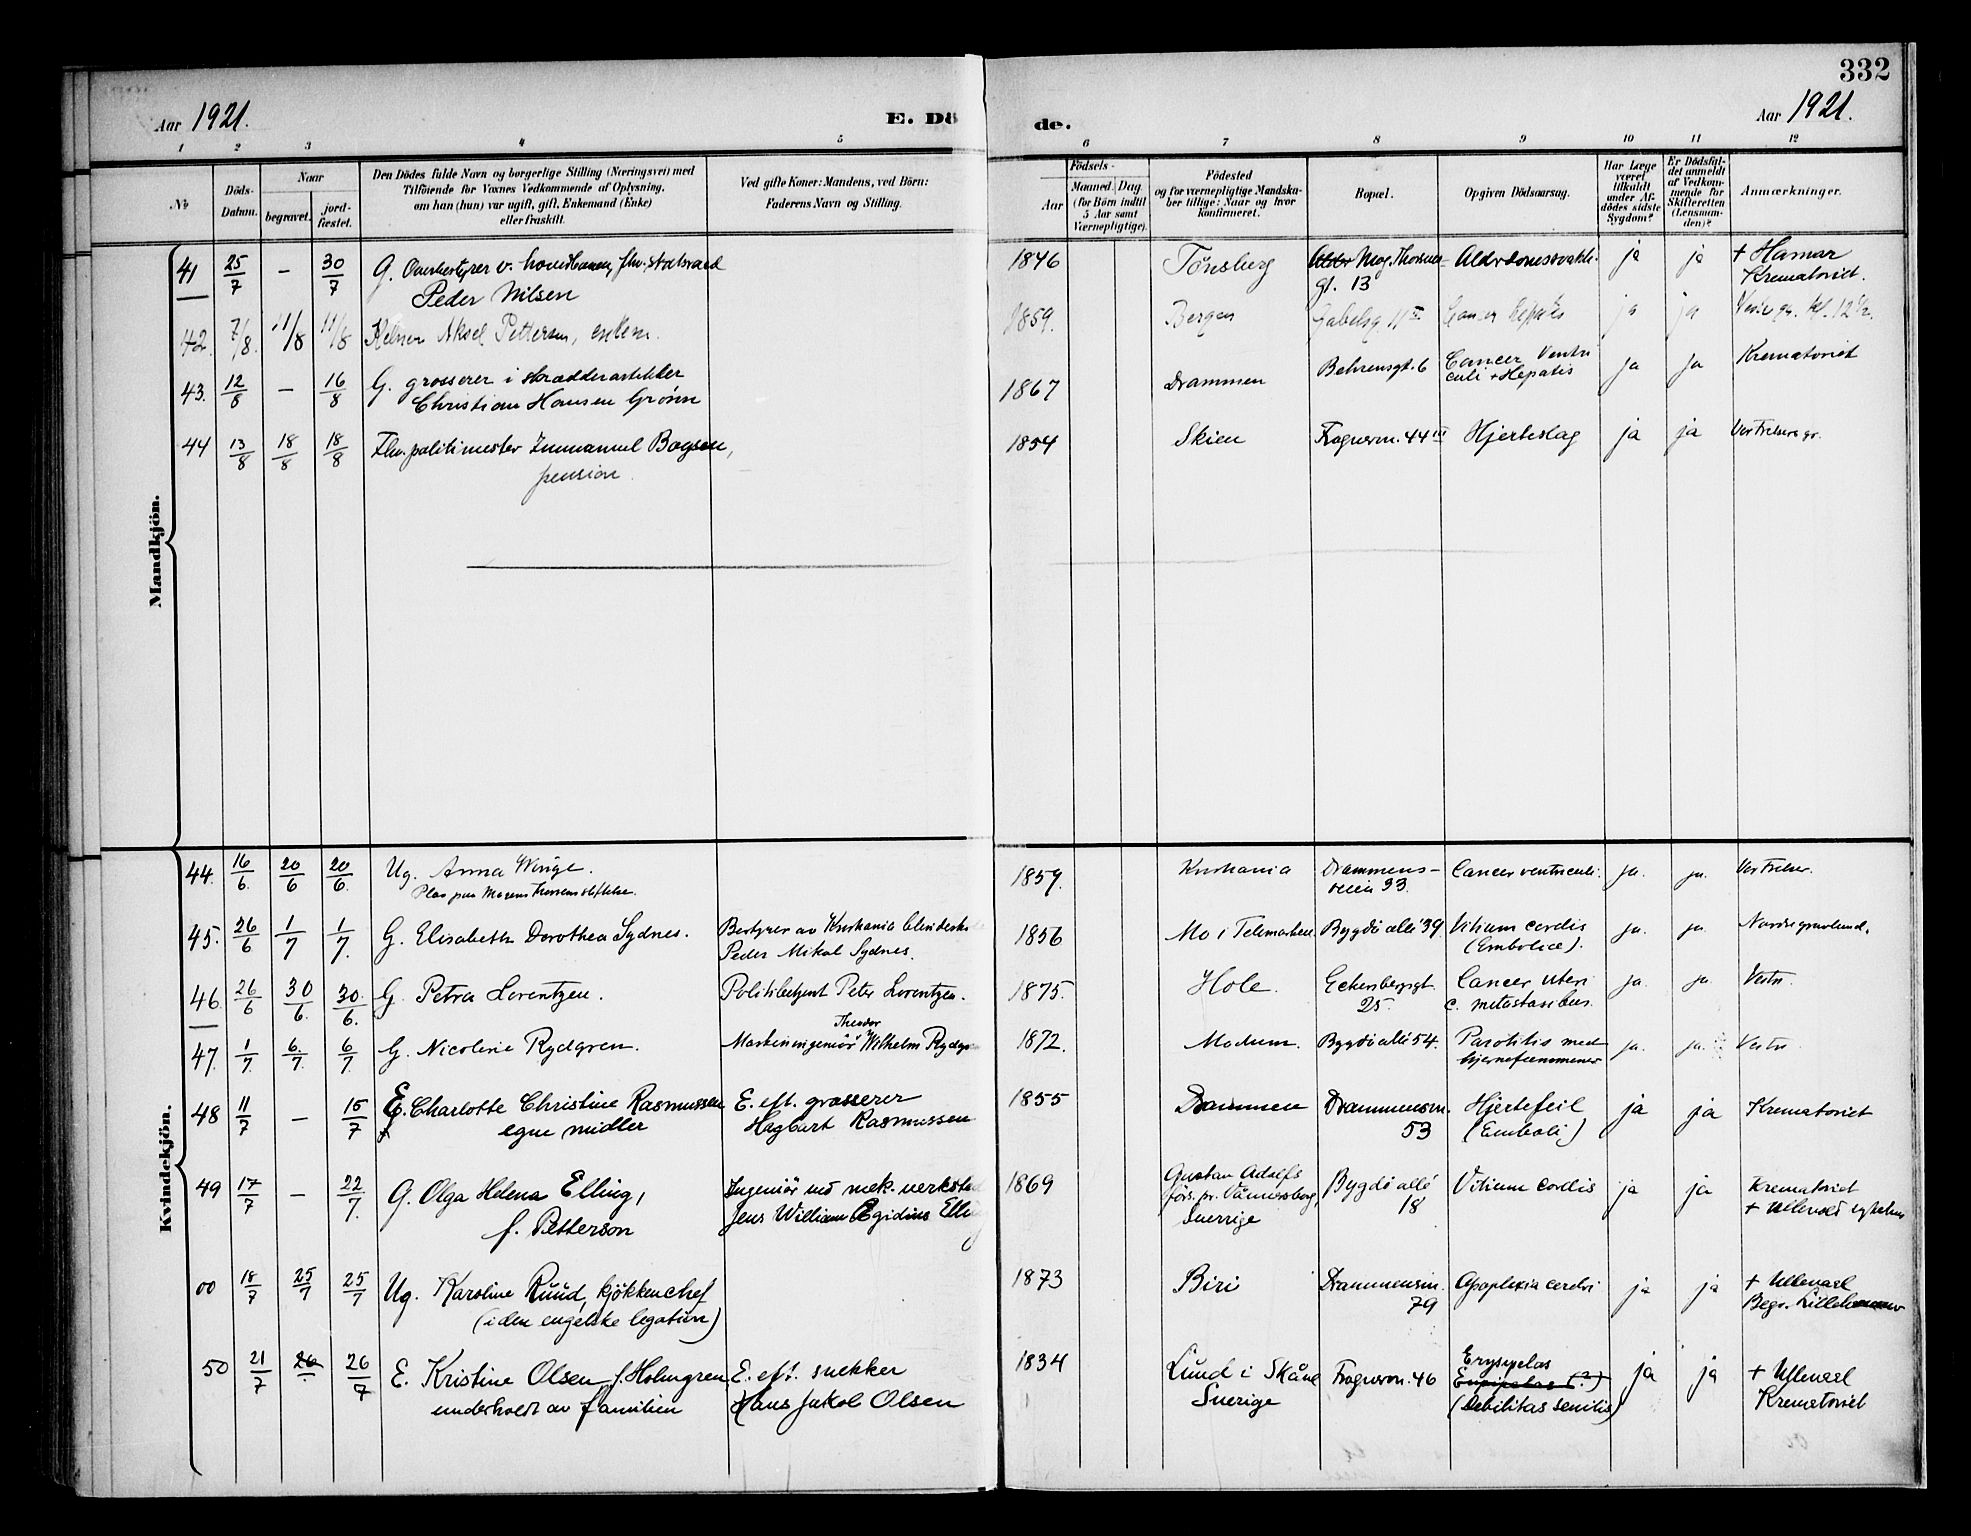 332
Aar 1921.
E. Dö de.
Aar 1921.
1 2 3 4 5 6 7 8 9 10 11 12
No
Döds-Datum.
Naar
begravet.
jord-fæstet.
Den Dödes fulde Navn og borgerlige Stilling (Næringsvei) med
Tilföiende for Voxnes Vedkommende af Oplysning,
om han (hun) var ugift, gift, Enkemand (Enke)
eller fraskilt.
Ved gifte Koner: Mandens, ved Börn:
Faderens Navn og Stilling.
Födsels-
Aar
Maaned. Dag.
(for Börn indtil
5 Aar samt
Værnepligtige).
Födested
og for værnepligtige Mandska-
ber tillige: Naar og hvor
konfirmeret.
Bopæl.
Opgiven Dödsaarsag.
Har Læge
været
tilkaldt
under Af-
dödes sidste
Sygdom?
Er Dödsfal-
det anmeldt
af Vedkom-
mende for
Skifteretten
(Lensman-
den)?
Anmærkninger.
Mandkjön.
41 25/7 — 30/7 G. Overbestyrer v. fhv. statsraad
Peder Nilsen
1846 Tönsberg Mog. Thorsens
gt. 13 Alderdomssvakh. ja ja + Hamar
Krematoriet.
42. 7/8. 11/8 11/8 Kelner Aksel Pettersen, enkem.
1859. Bergen Gabelsg 11 II Cancer hepatis ja ja
43. 12/8 — 16/8 G. grosserer i skrædderartikler
Christian Hansen Grönn
1867 Drammen Behrensgt. 6 Cancer Ventri
culi + Hepatis ja ja Krematoriet
44 13/8 18/8 18/8 Fhv. politimester Immanuel Bogsen,
pension.
1854 Skien Frognervn. 44 III Hjerteslag ja ja Vor Frelsers gr.
Kvindekjön.
44. 16/6. 20/6 20/6. Ug. Anna Winge.
1859. Kristiania Drammens-
veien 93. Cancer ventriculi. ja. ja. Vor Frelser.
45. 26/6 1/7 1/7. G. Elisabeth Dorothea Sydnes. Bestyrer av Kristiania blindeskole
Peder Mikal Sydnes.
1856 Mo i Telemarken Bygdö allé 39 Vitium cordis
(Embolia). ja. ja. Nordre gravlund.
46. 26/6 30/6. 30/6. G. Petra Lorentzen. Politibetjent Peter Lorentzen.
1875. Hole. Eckersbergsgt
25. Cancer uteri
c. metastasibus. ja. ja. Vestre
47. 1/7. 6/7. 6/7. G. Nicoline Rydgren. Maskiningeniör Theodor Wilhelm Rydgren
1872. Modum. Bygdö allé 54. Parotitis med
hjernefænomener ja. ja. Vestre
48 11/7 — 15/7 E. Charlotte Christine Rasmussen
egne midler E. eft. grosserer
Hagbart Rasmussen
1855 Drammen Drammensvn.
53 Hjertefeil
(Emboli) ja ja Krematoriet
49 17/7 — 22/7. G. Olga Helena Elling,
f. Petterson Ingeniör ved mek. verksted
Jens William Egidius Elling
1869 Gustav Adolfs
förs. pr. Vännersborg,
Sverige Bygdö allé
18 Vitium cordis ja ja Krematoriet
+ Ullevål sykehus
00 18/7 25/7 25/7 Ug. Karoline Ruud, kjökkenchef
(i den engelske legation)
1873 Biri Drammensvn.
79 Apoplexia cerebri ja ja + Ullevaal
Begr. Lillehammer
50 21/7 26 26/7 E. Kristine Olsen f. Holmgren
underholdt av familien E. eft. snekker
Hans Jakob Olsen
1834 Lund i Skåne
Sverige Frognervn. 46 Erysipelas
Erysipelas (?)
(Debilitas senilis) ja ja + Ullevaal
Krematoriet